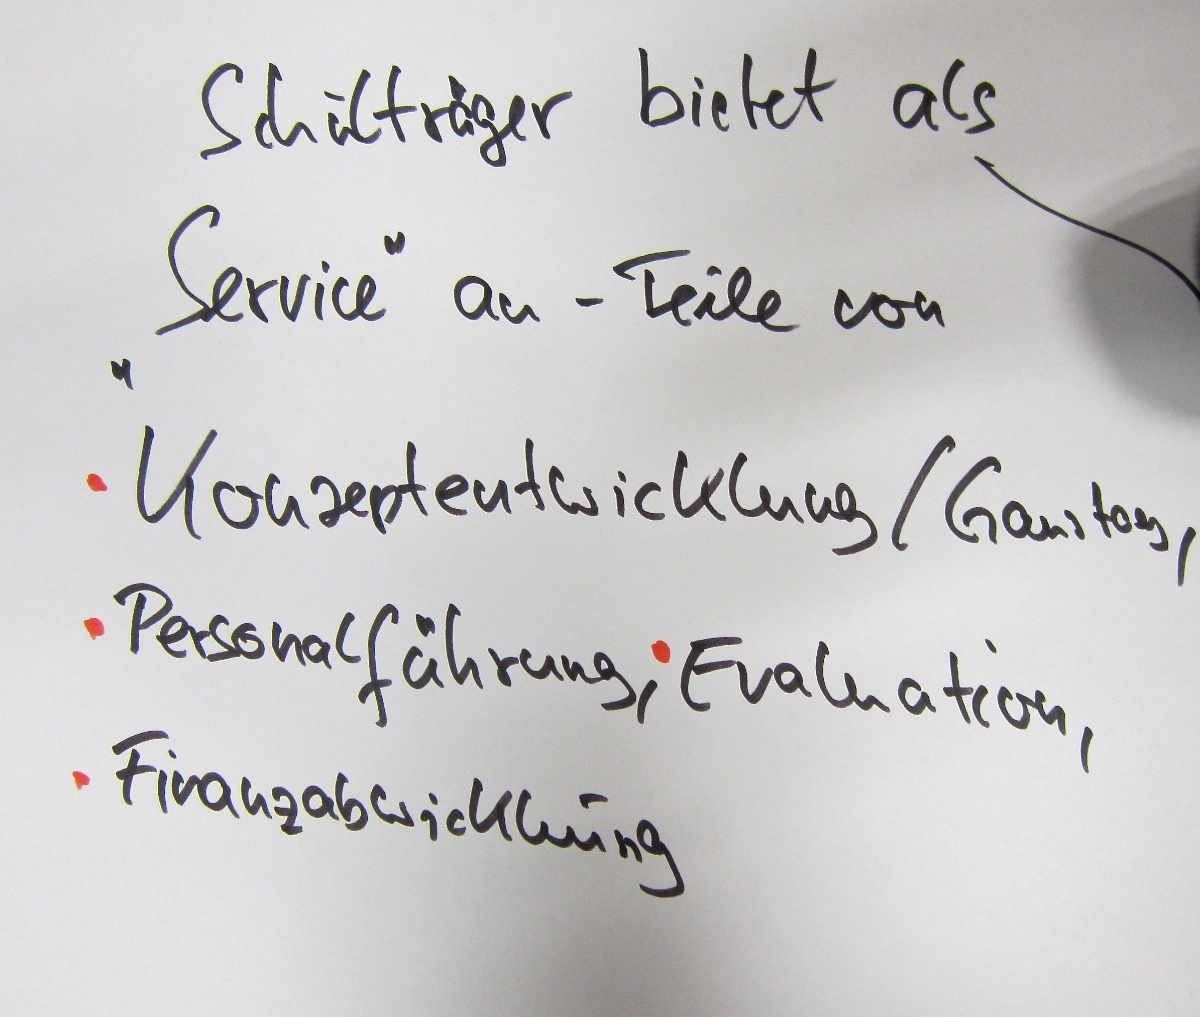 Schulträger bietet als
„Service" an - Teile von
• Konzeptentwicklung / Ganztag,
• Personalführung, • Evaluation,
• Finanzabwicklung